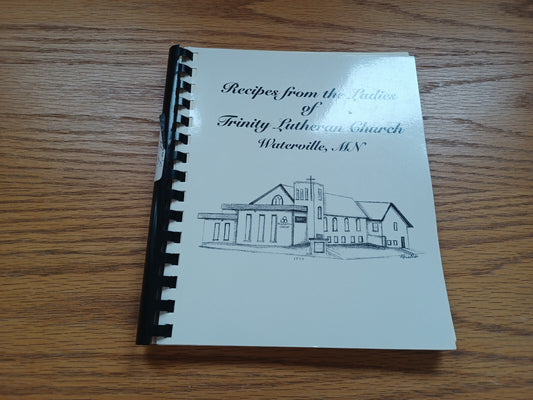 Recipes from the Ladies
of
Trinity Lutheran Church
Waterville, MN